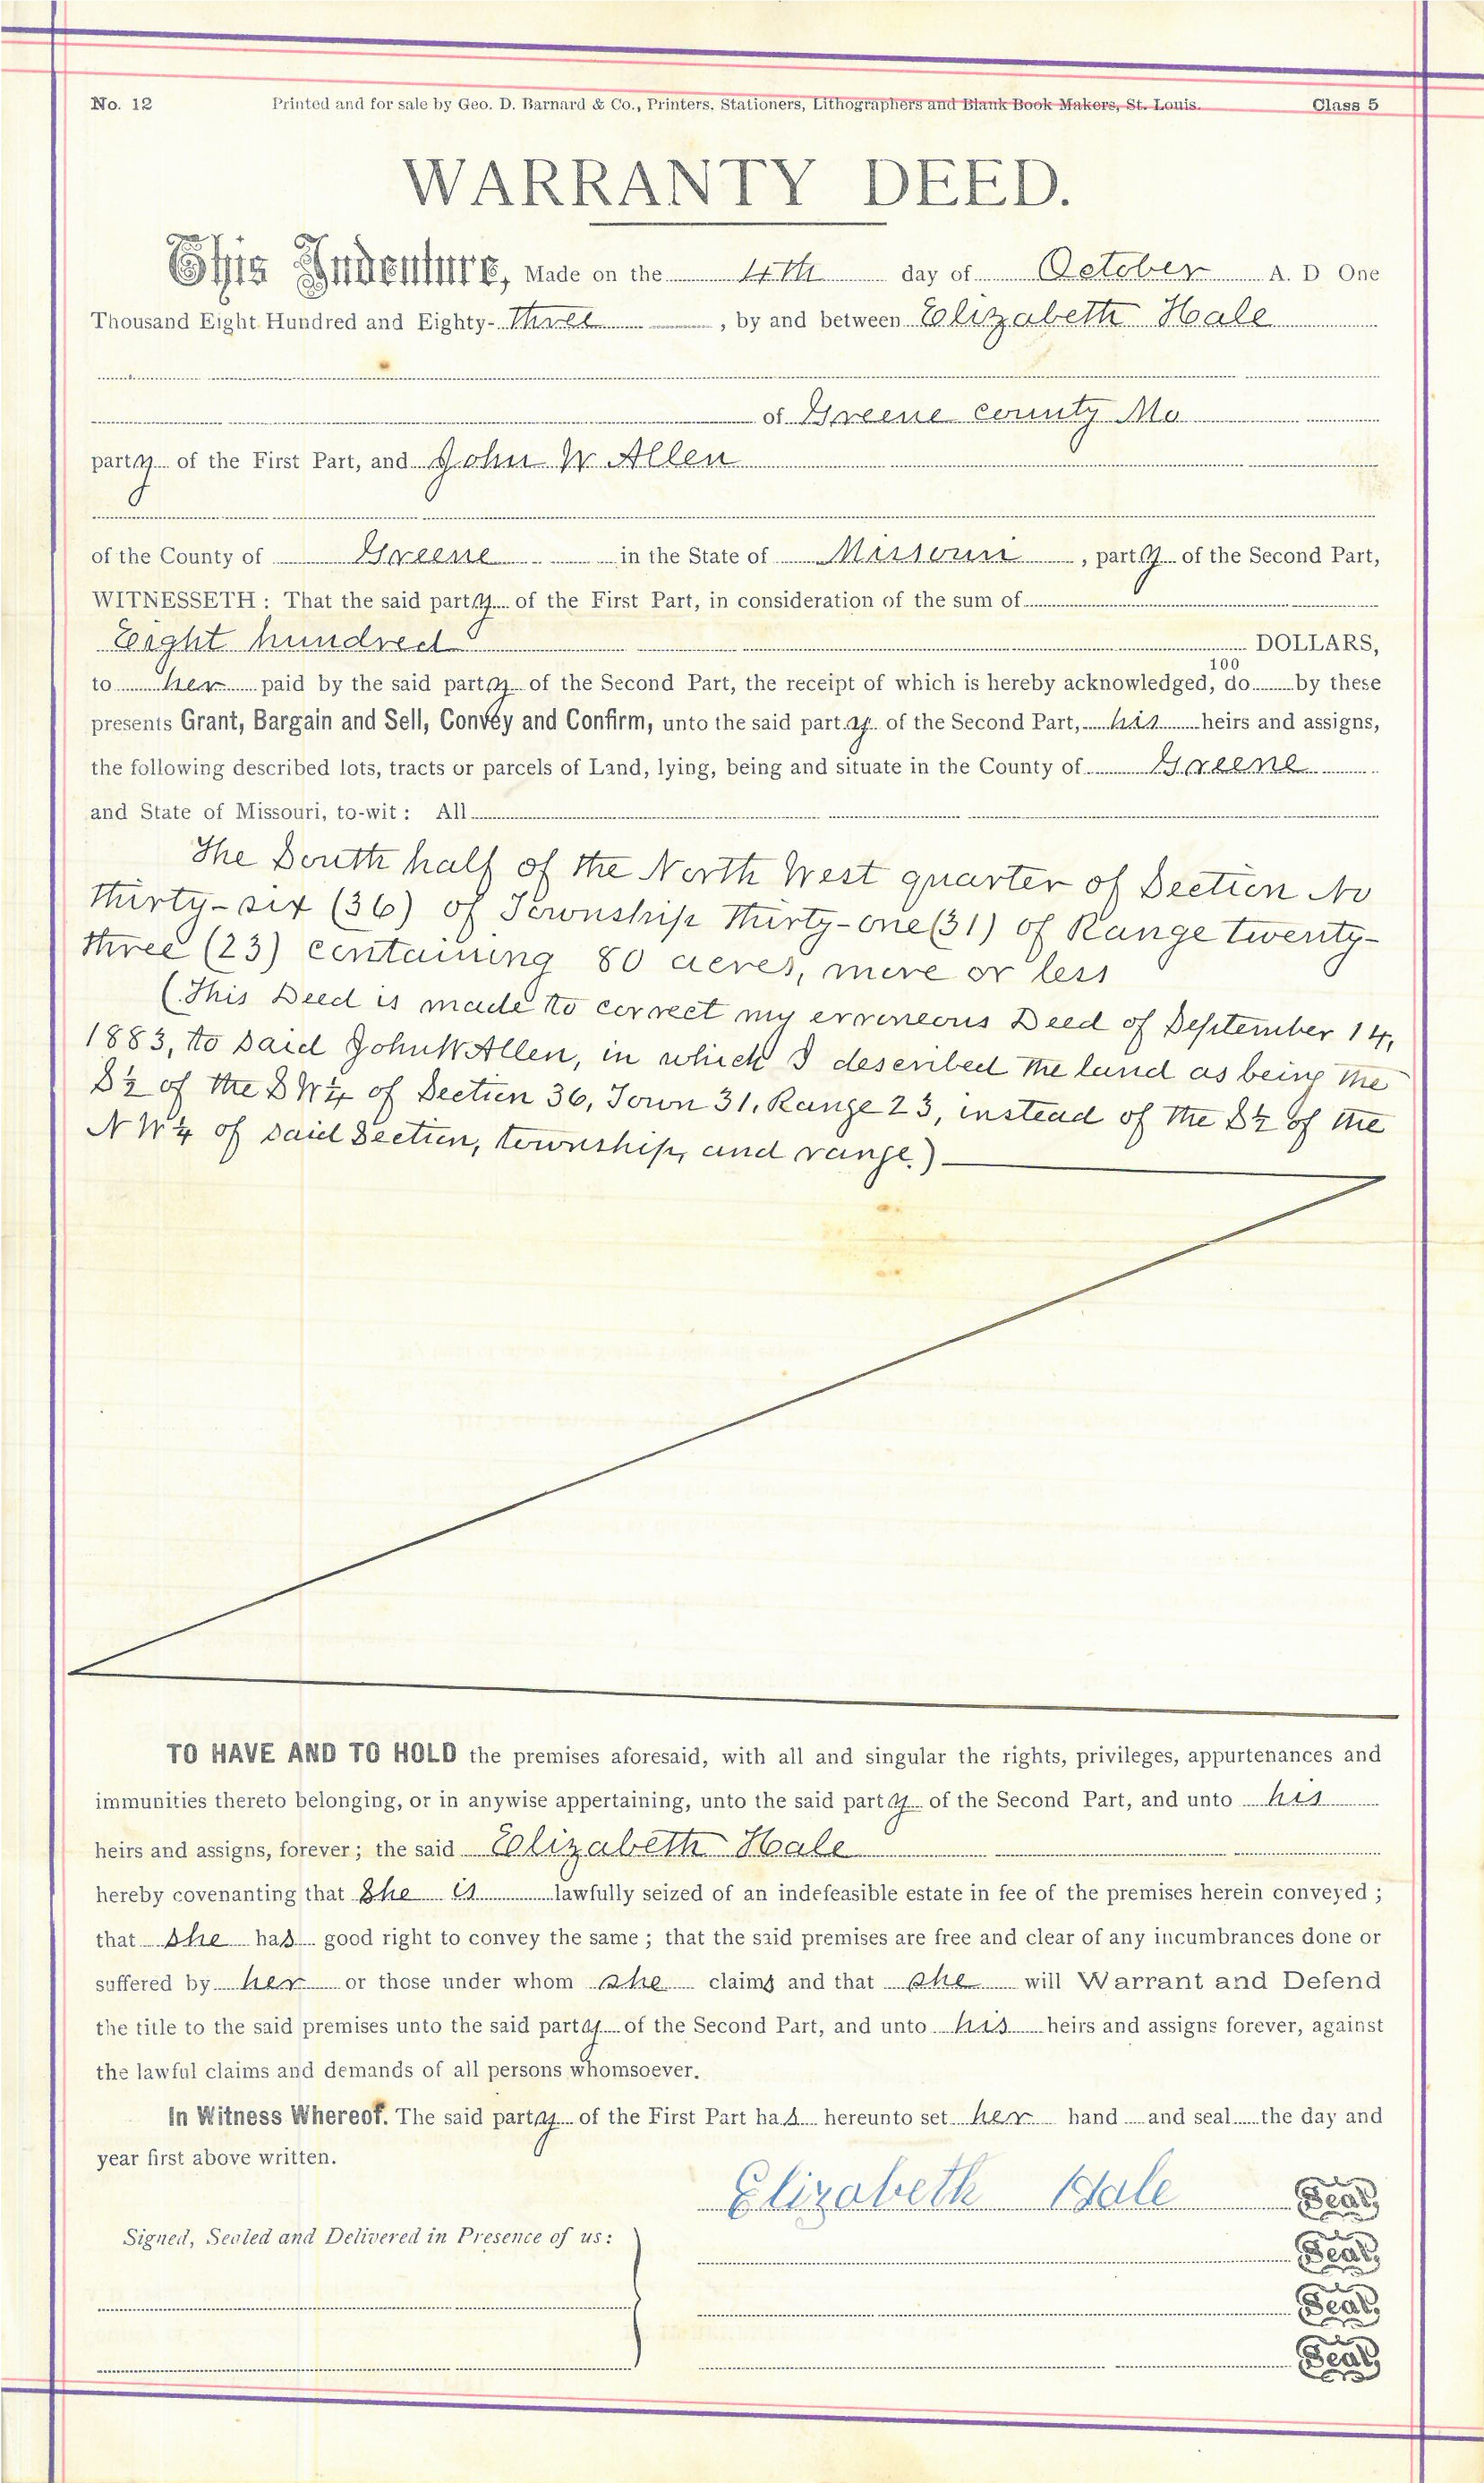 No. 12 Printed and for sale by Geo. D. Barnard & Co., Printers, Stationers, Lithographers and Blank Book Makers, St. Louis. Class 5
WARRANTY DEED.
This Indenture, Made on the 4th day of October A. D One
Thousand Eight Hundred and Eighty-three, by and between Elizabeth Hale
of Greene county Mo
party of the First Part, and John W Allen
of the County of Greene in the State of Missouri, party of the Second Part,
WITNESSETH: That the said party of the First Part, in consideration of the sum of
Eight hundred DOLLARS,
100
to her paid by the said party of the Second Part, the receipt of which is hereby acknowledged, do by these
presents Grant, Bargain and Sell, Convey and Confirm, unto the said party of the Second Part, his heirs and assigns,
the following described lots, tracts or parcels of Land, lying, being and situate in the County of Greene
and State of Missouri, to-wit: All
The South half of the North West quarter of Section No
thirty-six (36) of Township Thirty-one (31) of Range twenty-
three (23) containing 80 acres, more or less
(This Deed is made to correct my erroneous Deed of September 14,
1883, to said John W Allen, in which I described the land as being the
S½ of the SW¼ of Section 36, Town 31, Range 23, instead of the S½ of the
NW¼ of said Section, township, and range.)
TO HAVE AND TO HOLD the premises aforesaid, with all and singular the rights, privileges, appurtenances and
immunities thereto belonging, or in anywise appertaining, unto the said party of the Second Part, and unto his
heirs and assigns, forever; the said Elizabeth Hale
hereby covenanting that She is lawfully seized of an indefeasible estate in fee of the premises herein conveyed;
that she has good right to convey the same; that the said premises are free and clear of any incumbrances done or
suffered by her or those under whom she claims and that she will Warrant and Defend
the title to the said premises unto the said party of the Second Part, and unto his heirs and assigns forever, against
the lawful claims and demands of all persons whomsoever.
In Witness Whereof. The said party of the First Part has hereunto set her hand and seal the day and
year first above written.
Elizabeth Hale Seal
Signed, Sealed and Delivered in Presence of us:
Seal
Seal
Seal